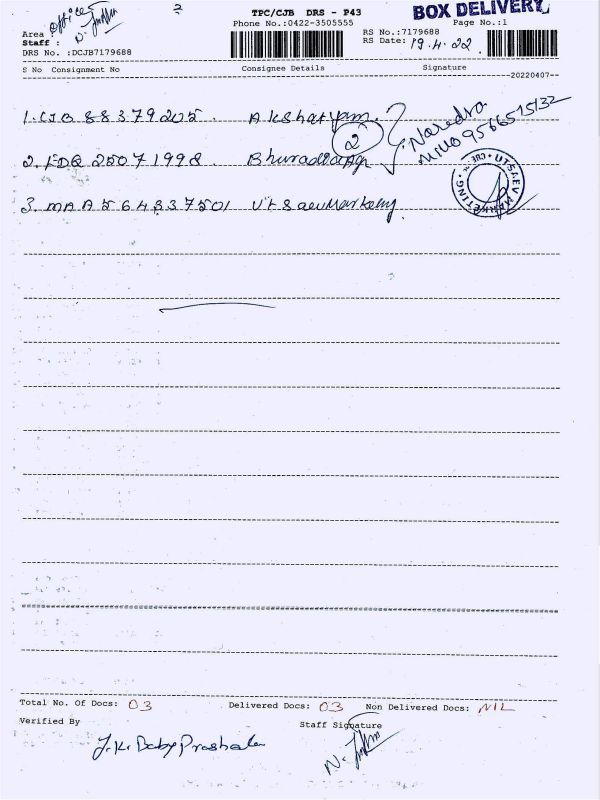 TPC/CJB DRS - P43
BOX DELIVERY
Phone No.:0422-3505555
Page No.:1
Area office
Staff :
DRS No. :DCJB7179688
RS No.:7179688
RS Date: 19.4.22
S No Consignment No Consignee Details Signature
--20220407--
1. CJB 88379205. Akshayam.
2
2. IDQ 25071998.
3. MAA 564337501 Utsaev Markeng.
Naredra
9566515132
UTSAEV MARKETING
Total No. Of Docs: 03 Delivered Docs: 03 Non Delivered Docs: NIL
Verified By Staff Signature
J.K. Baby Prashala